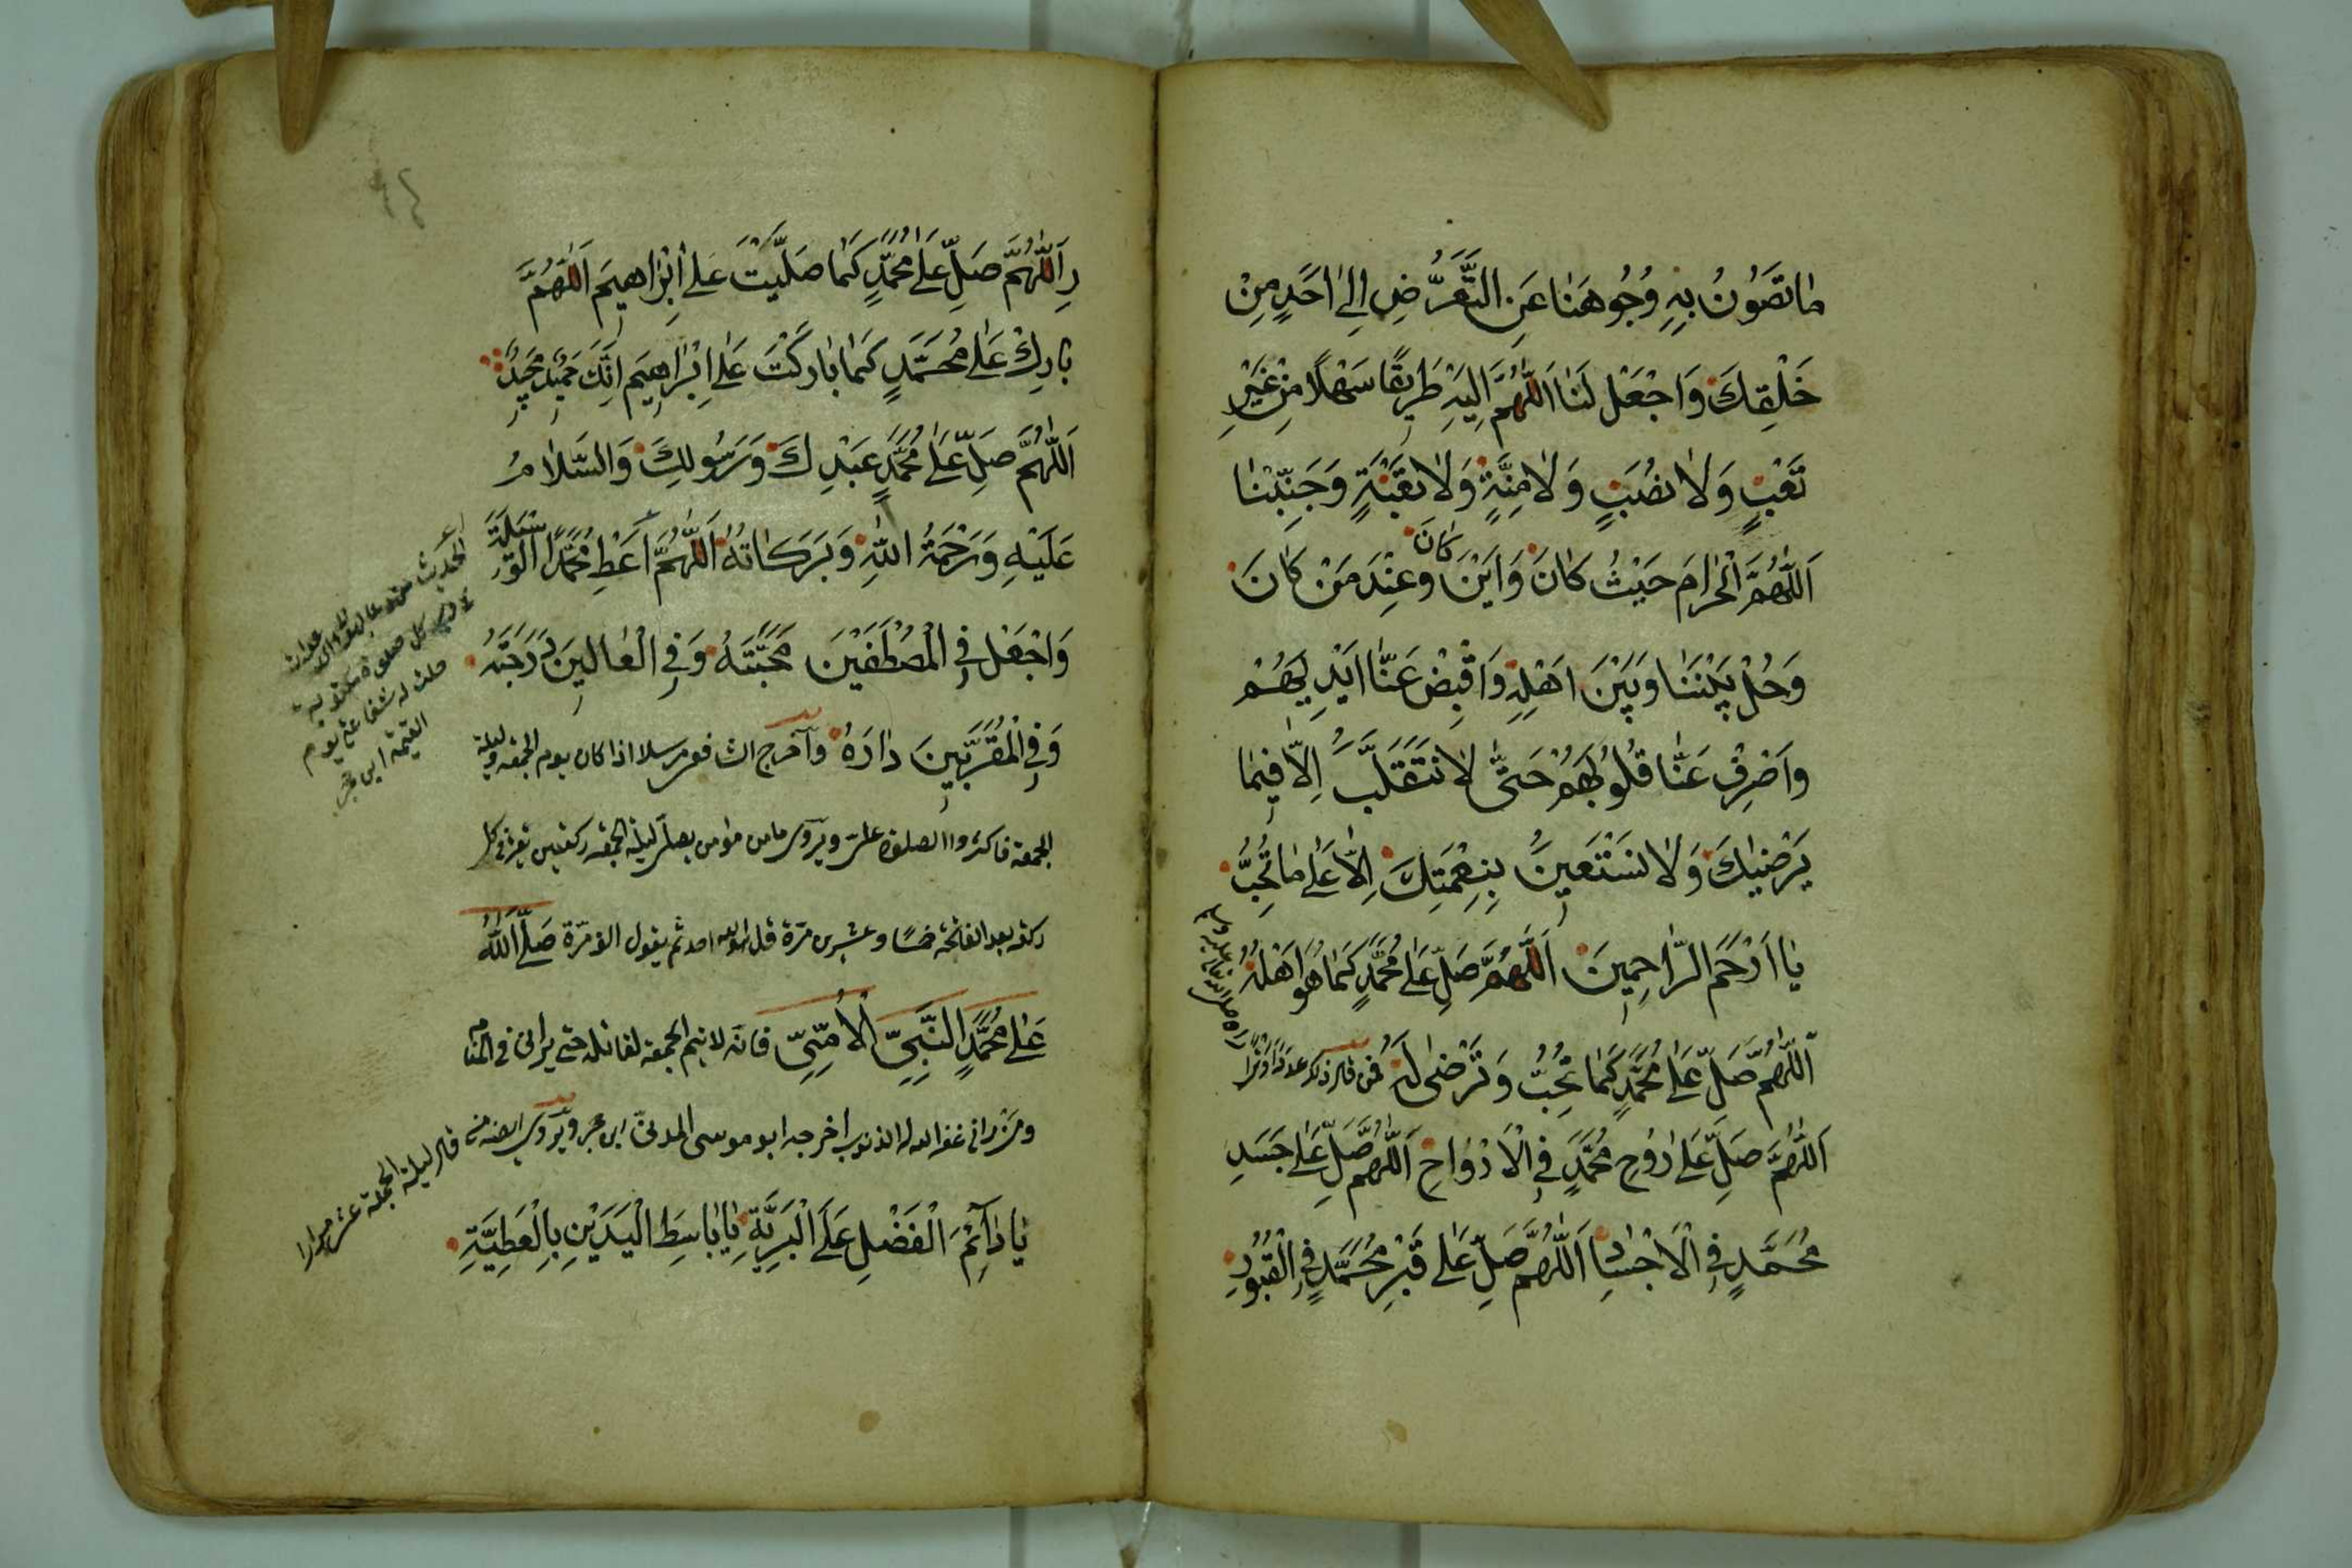 مَا تَصُونُ بِهِ وُجُوهَنَا عَنِ التَّعَرُّضِ اِلٰى اَحَدٍ مِنْ
خَلْقِكَ وَاجْعَلْ لَنَا اَللّٰهُمَّ اِلَيْهِ طَرِيقًا سَهْلًا مِنْ غَيْرِ
تَعَبٍ وَلَا نَصَبٍ وَلَا مِنَّةٍ وَلَا تَبِعَةٍ وَجَنِّبْنَا
اَللّٰهُمَّ الْحَرَامَ حَيْثُ كَانَ وَاَيْنَ كَانَ وَعِنْدَ مَنْ كَانَ
وَحُلْ بَيْنَنَا وَبَيْنَ اَهْلِهِ وَاقْبِضْ عَنَّا اَيْدِيَهُمْ
وَاصْرِفْ عَنَّا قُلُوبَهُمْ حَتّٰى لَا نَتَقَلَّبَ اِلَّا فِيمَا
يَرْضِيكَ وَلَا نَسْتَعِينَ بِنِعْمَتِكَ اِلَّا عَلٰى مَا تُحِبُّ
يَا اَرْحَمَ الرَّاحِمِينَ اَللّٰهُمَّ صَلِّ عَلٰى مُحَمَّدٍ كَمَا هُوَ اَهْلُهُ
اَللّٰهُمَّ صَلِّ عَلٰى مُحَمَّدٍ كَمَا تُحِبُّ وَتَرْضٰى لَهُ فمن قال ذلك عددًا وترًا
رآه صلى الله تعالى عليه وسلم
اَللّٰهُمَّ صَلِّ عَلٰى رُوحِ مُحَمَّدٍ فِي الْاَرْوَاحِ اَللّٰهُمَّ صَلِّ عَلٰى جَسَدِ
مُحَمَّدٍ فِي الْاَجْسَادِ اَللّٰهُمَّ صَلِّ عَلٰى قَبْرِ مُحَمَّدٍ فِي الْقُبُورِ
اَللّٰهُمَّ صَلِّ عَلٰى مُحَمَّدٍ كَمَا صَلَّيْتَ عَلٰى اِبْرَاهِيمَ اَللّٰهُمَّ
بَارِكْ عَلٰى مُحَمَّدٍ كَمَا بَارَكْتَ عَلٰى اِبْرَاهِيمَ اِنَّكَ حَمِيدٌ مَجِيدٌ
اَللّٰهُمَّ صَلِّ عَلٰى مُحَمَّدٍ عَبْدِكَ وَرَسُولِكَ وَالسَّلَامُ
عَلَيْهِ وَرَحْمَةُ اللّٰهِ وَبَرَكَاتُهُ اَللّٰهُمَّ اَعْطِ مُحَمَّدًا الْوَسِيلَةَ
وَاجْعَلْ فِي الْمُصْطَفَيْنَ مَحَبَّتَهُ وَفِي الْعَالِينَ دَرَجَتَهُ
وَفِي الْمُقَرَّبِينَ دَارَهُ وآخرج الشافعى مرسلا اذا كان يوم الجمعه وليلة
الجمعة فاكثروا الصلوة علىّ ويروى ما من مؤمن يصلى ليلة الجمعه ركعتين يقرأ فى كل
ركعة بعد الفاتحة خمسًا وعشرين مرّة قل هو الله احد ثم يقول الف مرّة صَلَّى اللّٰهُ
عَلٰى مُحَمَّدٍ النَّبِيِّ الْاُمِّيِّ فانّه لا يتم الجمعة القابلة حتى يرانى فى المنام
ومن رانى غفر الله له الذنوب اخرجه ابو موسى المدنىّ ابن حجر ويروى ايضا من قال ليلة الجمعة عشر مرارا
يَا دَائِمَ الْفَضْلِ عَلَى الْبَرِيَّةِ يَا بَاسِطَ الْيَدَيْنِ بِالْعَطِيَّةِ
الحديث
كل صلوة مكتوبة
حلت له شفاعتى يوم
القيمة ابن حجر